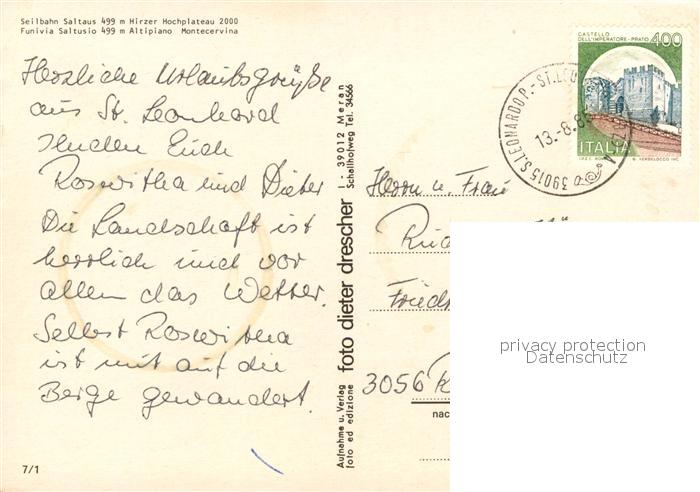 Seilbahn Saltaus 499 m Hirzer Hochplateau 2000
Funivia Saltusio 499 m Altipiano Montecervina
Herzliche Urlaubsgrüße
aus St. Leonhard
senden Euch
Roswitha und Dieter
Die Landschaft ist
herrlich und vor
allem das Wetter.
Selbst Roswitha
ist mit auf die
Berge gewandert.
7/1
Aufnahme u. Verlag
foto ed edizione
foto dieter drescher
I - 39012 Meran
Schallhofweg Tel. 34566
CASTELLO
DELL'IMPERATORE - PRATO
400
ITALIA
39015 S. LEONARDO P. - ST. LEO
13.-8.86
Herrn u. Frau
3056
nac
privacy protection
Datenschutz